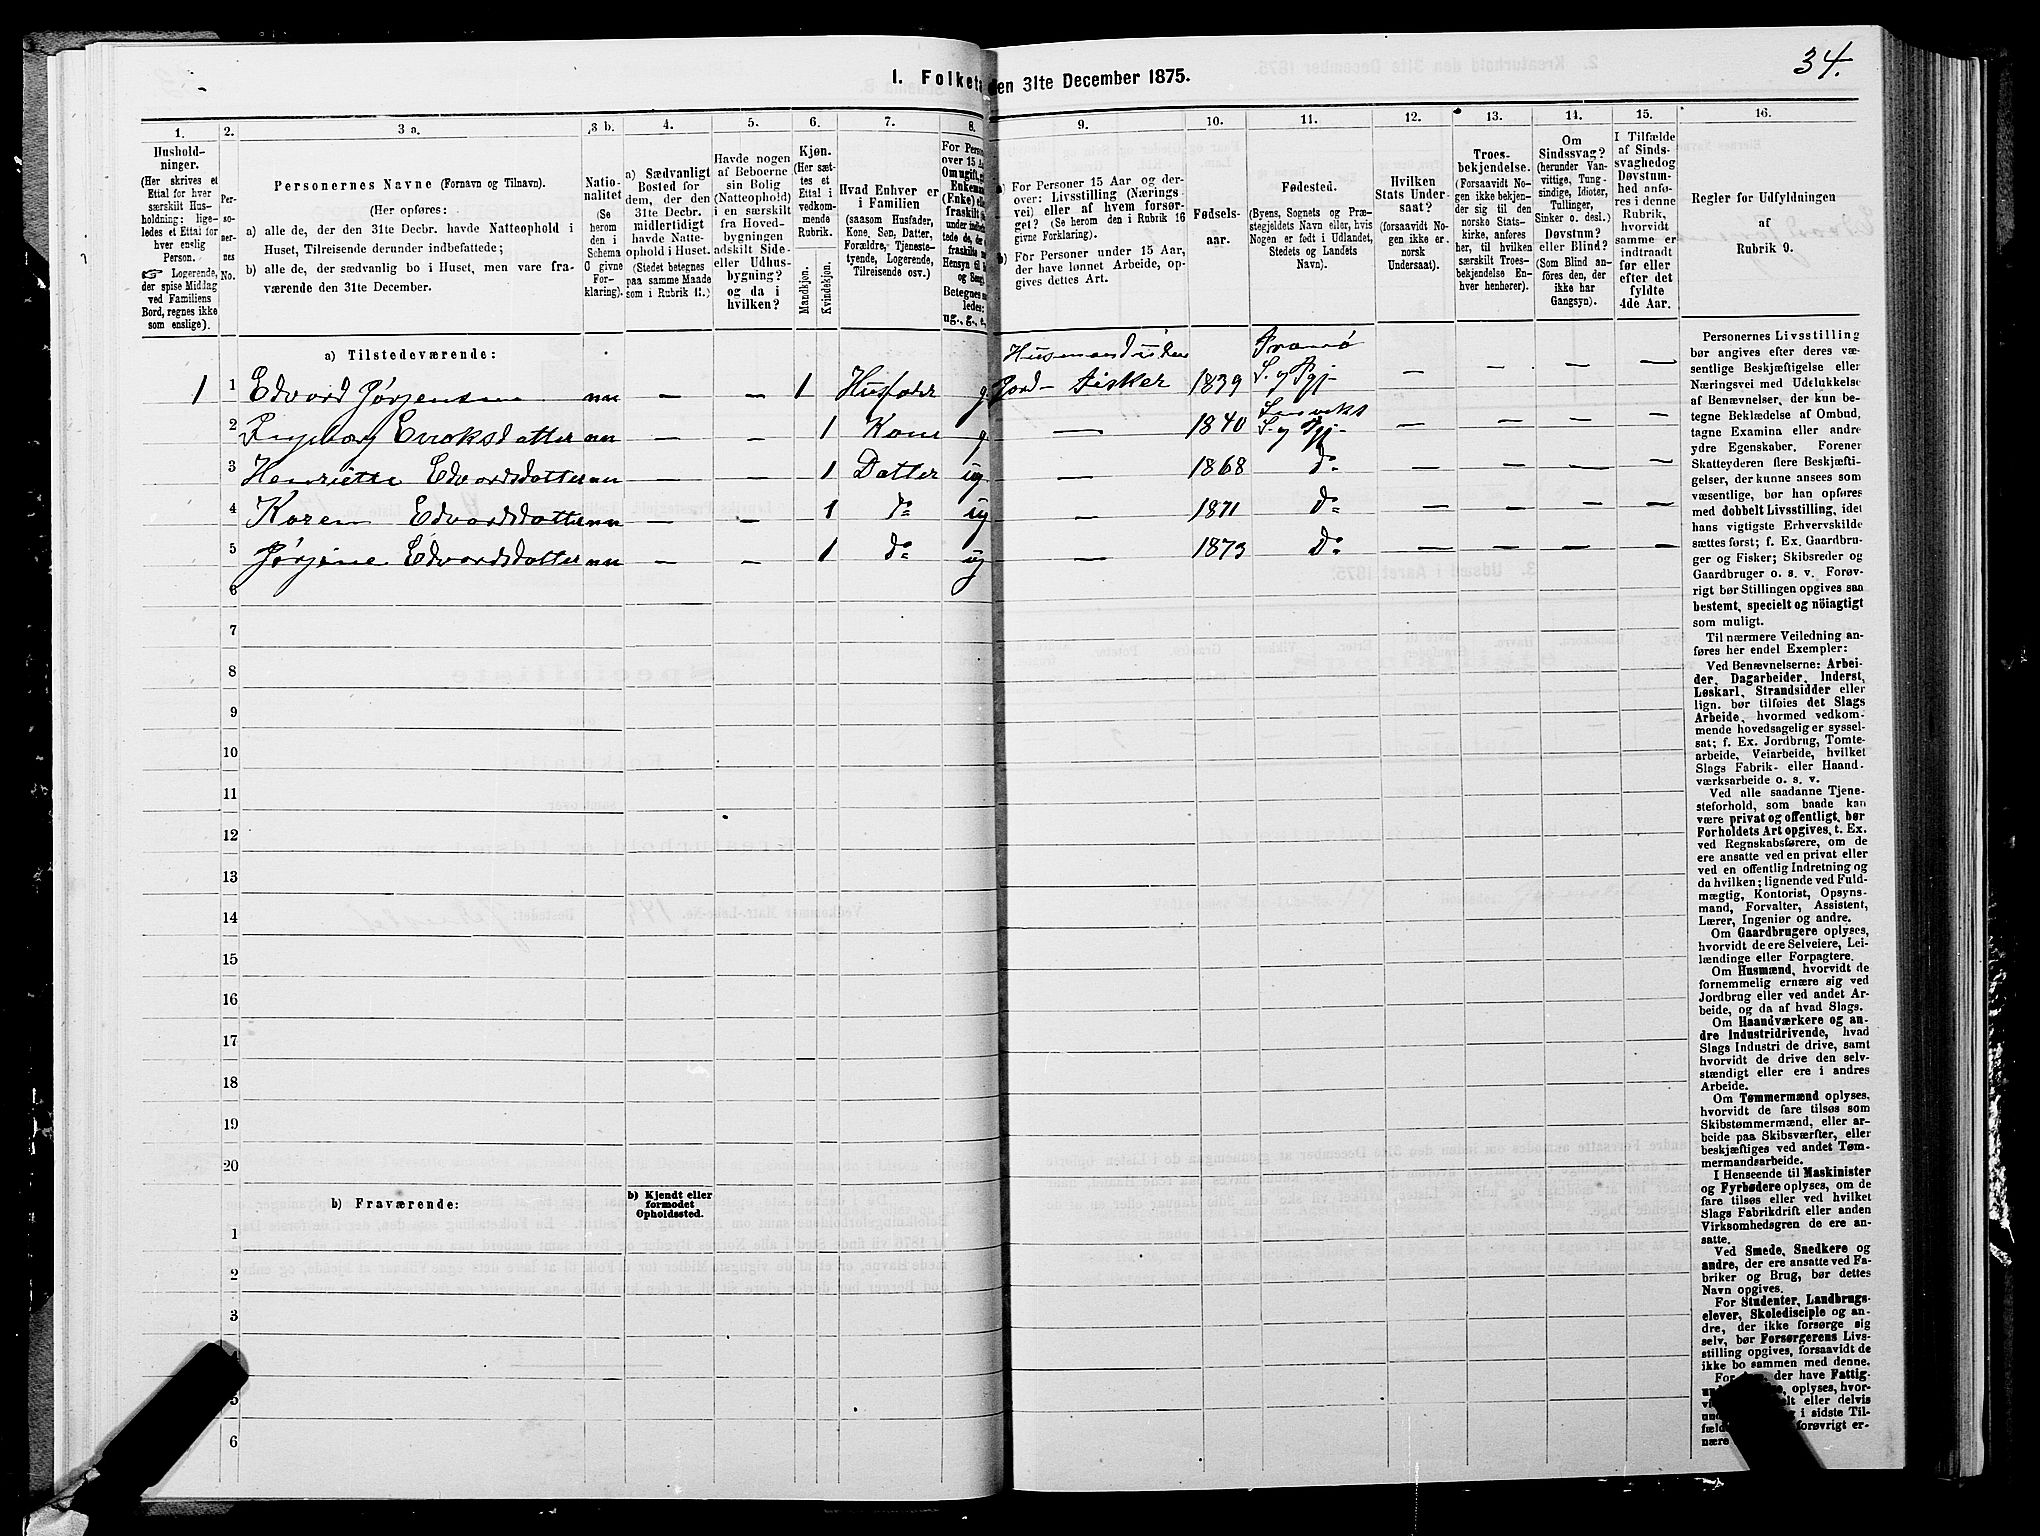 34.
1. Folket en 31te December 1875.
1. 2. 3 a. 3 b. 4. 5. 6. 7. 8. 9. 10. 11. 12. 13. 14. 15. 16.
Hushold-
ninger.
(Her skrives et
Ettal for hver
særskilt Hus-
holdning; lige-
ledes et Ettal for
hver enslig
Person.
☞ Logerende,
der spise Middag
ved Familiens
Bord, regnes ikke
som enslige).
Per-
so-
ner-
nes
No.
Personernes Navne (Fornavn og Tilnavn).
(Her opføres:
a) alle de, der den 31te Decbr. havde Natteophold i
Huset, Tilreisende derunder indbefattede;
b) alle de, der sædvanlig bo i Huset, men vare fra-
værende den 31te December.
Natio-
nalitet
(Se
herom
den i
Schema
C givne
For-
klaring).
a) Sædvanligt
Bosted for
dem, der den
31te Decbr.
midlertidigt
havde Natte-
ophold i Huset.
(Stedet betegnes
paa samme Maade
som i Rubrik 11.)
Havde nogen
af Beboerne
sin Bolig
(Natteophold)
i en særskilt
fra Hoved-
bygningen
adskilt Side-
eller Udhus-
bygning?
og da i
hvilken?
Kjøn.
(Her sæt-
tes et
Ettal i
vedkom-
mende
Rubrik.
Mandkjøn.
Kvindekjøn.
Hvad Enhver er
i Familien
(saasom Husfader,
Kone, Søn, Datter,
Forældre, Tjeneste-
tyende, Logerende,
Tilreisende osv.)
For Pers
over 15 A
Om ugift, g
Enkem
(Enke) el
fraskilt
under indbe
tede de, d
fraskilte
Hensyn til
og Seng
Betegnes
ledes:
ug., g., e.,
a) For Personer 15 Aar og der-
over: Livsstilling (Nærings-
vei) eller af hvem forsør-
get? (Se herom den i Rubrik 16
givne Forklaring).
b) For Personer under 15 Aar,
der have lønnet Arbeide, op-
gives dettes Art.
Fødsels-
aar.
Fødested.
(Byens, Sognets og Præ-
stegjeldets Navn eller, hvis
Nogen er født i Udlandet,
Stedets og Landets
Navn).
Hvilken
Stats Under-
saat?
(forsaavidt No-
gen ikke er
norsk
Undersaat).
Troes-
bekjendelse.
(Forsaavidt No-
gen ikke bekjen-
der sig til den
norske Stats-
kirke, anføres
her, til hvilken
særskilt Troes-
bekjendelse En-
hver henhører).
Om
Sindssvag?
(herunder Van-
vittige, Tung-
sindige, Idioter,
Tullinger,
Sinker o. desl.)
Døvstum?
eller Blind?
(Som Blind an-
føres den, der
ikke har
Gangsyn).
I Tilfælde
af Sinds-
svaghed og
Døvstum-
hed anfø-
res i denne
Rubrik,
hvorvidt
samme er
indtraadt
før eller
efter det
fyldte
4de Aar.
Regler for Udfyldningen
af
Rubrik 9.
a) Tilstedeværende:
Husmand uden Tranø
1 1 Edvard Jørgensen nn — — 1 Husfader g Jord- Fisker 1839 S. og Pgj- — — — —
2 Ingeborg Eriksdatter nn — — 1 Kone g — 1840 S. og Pgj- — — — —
3 Henriette Edvardsdatter nn — — 1 Datter ug — 1868 do — — — —
4 Karen Edvardsdatter nn — — 1 do ug — 1871 do — — — —
5 Jørgine Edvardsdatter nn — — 1 do ug — 1873 do — — — —
6
7
8
9
10
11
12
13
14
15
16
17
18
19
20
b) Fraværende:
b) Kjendt eller
formodet
Opholdssted.
1
2
3
5
6
Personernes Livsstilling
bør angives efter deres væ-
sentlige Beskjæftigelse eller
Næringsvei med Udelukkelse
af Benævnelser, der kun be-
tegne Beklædelse af Ombud,
tagne Examina eller andre
ydre Egenskaber. Forener
Skatteyderen flere Beskjæfti-
gelser, der kunne ansees som
væsentlige, bør han opføres
med dobbelt Livsstilling, idet
hans vigtigste Erhvervskilde
sættes først; f. Ex. Gaardbru-
ger og Fisker; Skibsreder og
Gaardbruger o. s. v. Forøv-
rigt bør Stillingen opgives saa
bestemt, specielt og nöiagtigt
som muligt.
Til nærmere Veiledning an-
føres her endel Exempler:
Ved Benævnelserne: Arbei-
der, Dagarbeider, Inderst,
Løskarl, Strandsidder eller
lign. bør tilføies det Slags
Arbeide, hvormed vedkom-
mende hovedsagelig er syssel-
sat; f. Ex. Jordbrug, Tomte-
arbeide, Veiarbeide, hvilket
Slags Fabrik- eller Haand-
værksarbeide o. s. v.
Ved alle saadanne Tjene-
steforhold, som baade kan
være privat og offentligt, bør
Forholdets Art opgives, t. Ex.
ved Regnskabsførere, om de
ere ansatte ved en privat eller
ved en offentlig Indretning og
da hvilken; lignende ved Fuld-
mægtig, Kontorist, Opsyns-
mand, Forvalter, Assistent,
Lærer, Ingeniør og andre.
Om Gaardbrugere oplyses,
hvorvidt de ere Selveiere, Lei-
lændinge eller Forpagtere.
Om Husmænd, hvorvidt de
fornemmelig ernære sig ved
Jordbrug eller ved andet Ar-
beide, og da af hvad Slags.
Om Haandværkere og an-
dre Industridrivende, hvad
Slags Industri de drive, samt
hvorvidt de drive den selv-
stændigt eller ere i andres
Arbeide.
Om Tømmermænd oplyses,
hvorvidt de fare tilsøs som
Skibstømmermænd, eller ar-
beide paa Skibsværfter, eller
beskjæftiges ved andet Tøm-
mermandsarbeide.
I Henseende til Maskinister
og Fyrbødere oplyses, om de
fare tilsøs eller ved hvilket
Slags Fabrikdrift eller anden
Virksomhedsgren de ere an-
satte.
Ved Smede, Snedkere og
andre, der ere ansatte ved Fa-
briker og Brug, bør dettes
Navn opgives.
For Studenter, Landbrugs-
elever, Skoledisciple og an-
dre, der ikke forsørge sig
selv, bør Forsørgerens Livs-
stilling opgives, forsaavidt de
ikke bo sammen med denne.
For der have Fattig-
oplyses, hvor-
eller delvis
i sidste Til-
forøvrigt er-
nære